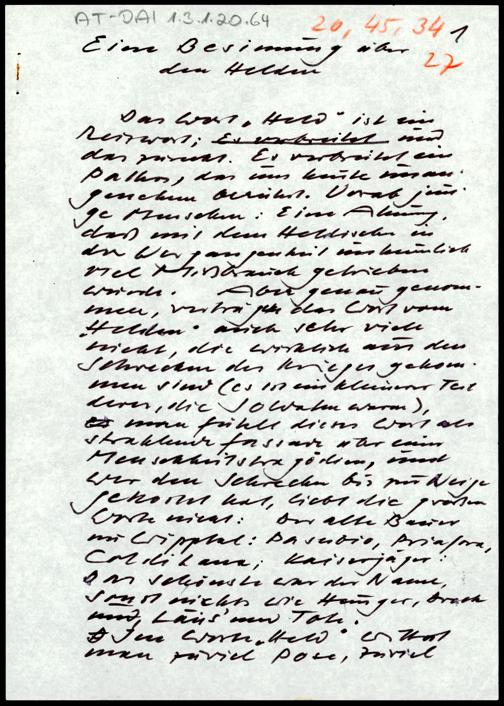 AT-DAI 1.3.1.20.64
20, 45, 34 1
27
Eine Besinnung über
den Helden
Das Wort „Held" ist ein
Reizwort; Es verbreitet und
das zurecht. Es verbreitet ein
Pathos, das uns heute unan-
genehm berührt. Vorab jun-
ge Menschen: Eine Ahnung,
daß mit dem Heldischen in
der Vergangenheit unheimlich
viel Mißbrauch getrieben
wurde. Aber genau genom-
men, verträgt das Wort vom
„Helden" auch sehr viele
nicht, die wirklich aus den
Schrecken des Krieges gekom-
men sind (es ist ein kleinerer Teil
derer, die Soldaten waren),
man fühlt dieses Wort als
strahlende Fassade über einer
Menschheitstragödien, und
wer den Schrecken bis zur Neige
gekostet hat, liebt die großen
Worte nicht: Der alte Bauer
im Wipptal: Pasubio,
Col di Lana, Kaiserjäger:
Das schönste war der Name,
sonst nichts wie Hunger, Dreck
und Läus' und Tote.
Im Worte „Held" wittert
man zuviel Pose, zuviel